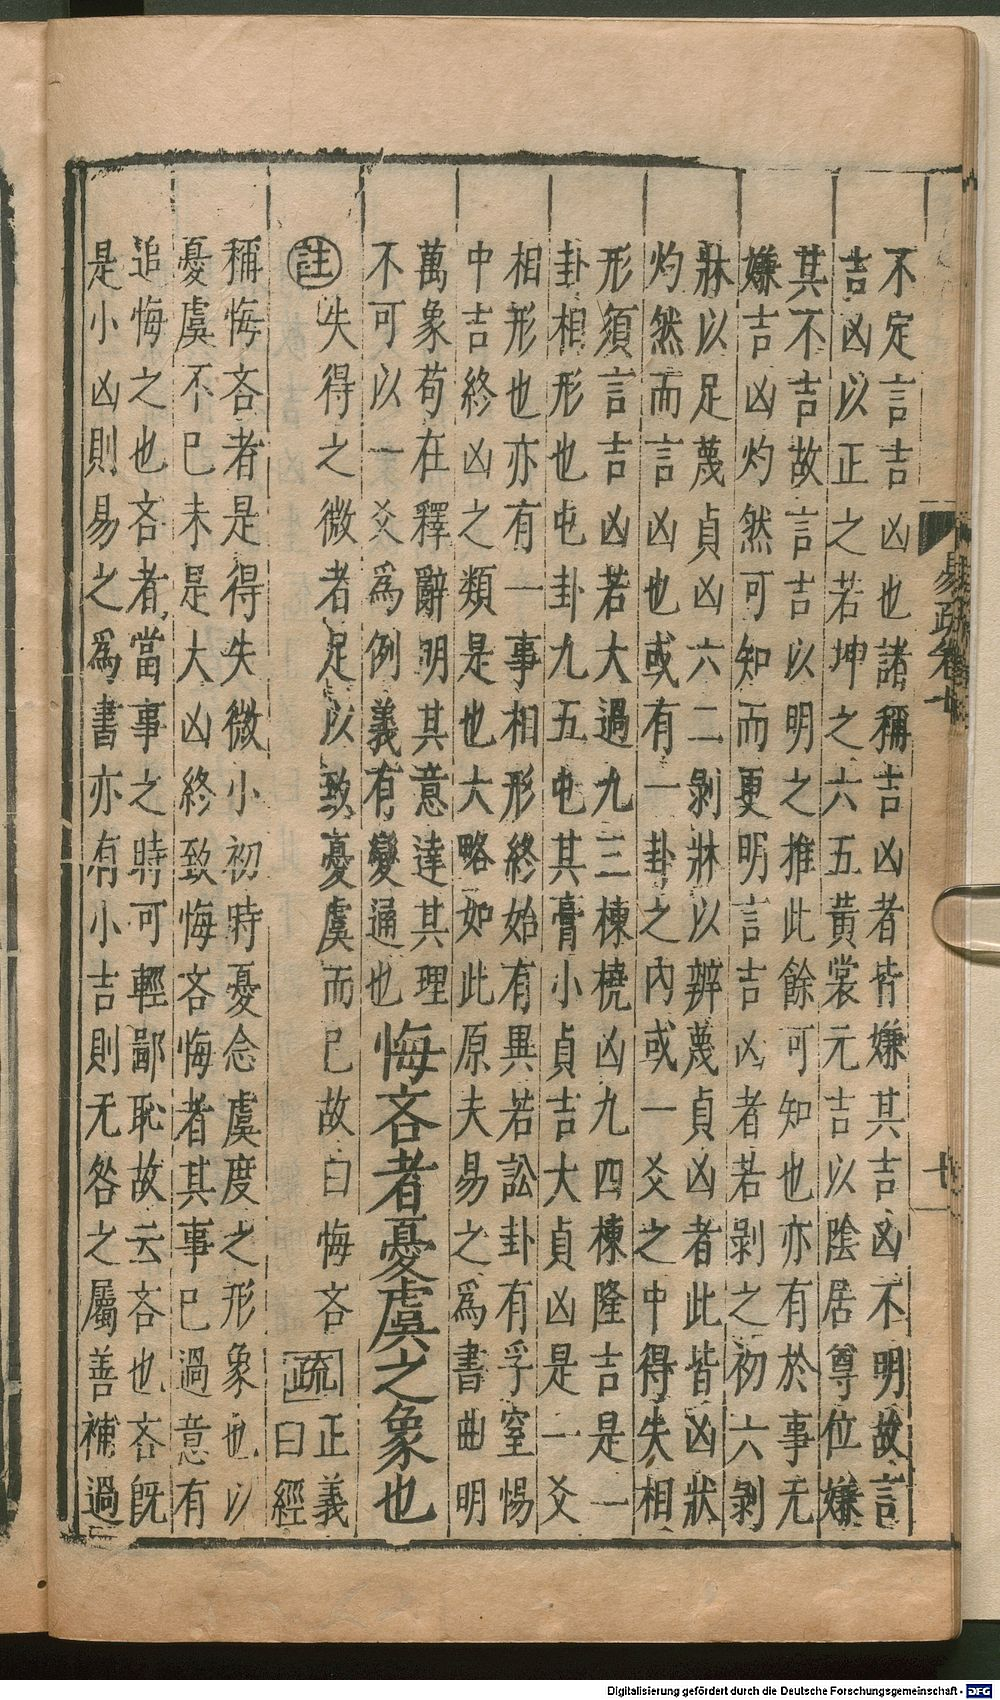 不定言吉凶也諸稱吉凶者皆嫌其吉凶不明故言
吉凶以正之若坤之六五黃裳元吉以陰居尊位嫌
其不吉故言吉以明之推此餘可知也亦有於事无
嫌吉凶灼然可知而更明言吉凶者若剥之初六剥
牀以足蔑貞凶六二剥牀以辨蔑貞凶者此皆凶狀
灼然而言凶也或有一卦之內或一爻之中得失相
形須言吉凶若大過九三棟橈凶九四棟隆吉是一
卦相形也屯卦九五屯其膏小貞吉大貞凶是一爻
相形也亦有一事相形終始有異若訟卦有孚窒惕
中吉終凶之類是也大略如此原夫易之為書曲明
萬象苟在釋辭明其意達其理
不可以一爻為例義有變通也
悔吝者憂虞之象也
註
失得之微者足以致憂虞而已故曰悔吝
疏
正義
曰經
稱悔吝者是得失微小初時憂念虞度之形象也以
憂虞不已未是大凶終致悔吝悔者其事已過意有
追悔之也吝者當事之時可輕鄙恥故云吝也吝既
是小凶則易之為書亦有小吉則无咎之屬善補過
易疏卷十
七
Digitalisierung gefördert durch die Deutsche Forschungsgemeinschaft - DFG